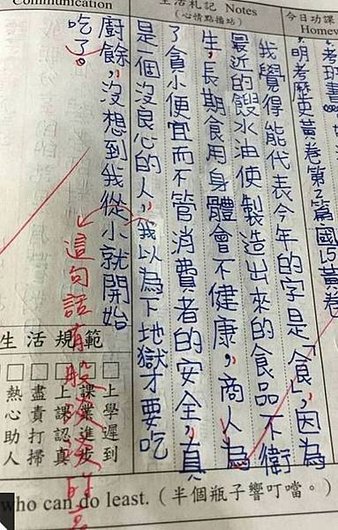 Communication
生活札記 Notes
(心情點播站)
今日功課
Homew
明考歷史黃卷第2篇國15黃卷
我覺得能代表今年的字是「食」,因為
最近的餿水油使製造出來的食品不衛
生,長期食用身體會不健康,商人為
了貪小便宜而不管消費者的安全,真
是一個沒良心的人,我以為下地獄才要吃
廚餘,沒想到我從小就開始
吃了。
這句話有股淡淡的
生活規範
上學遲到
上課認真
課業進步
盡責打掃
熱心助人
who can do least.(半個瓶子響叮噹。)